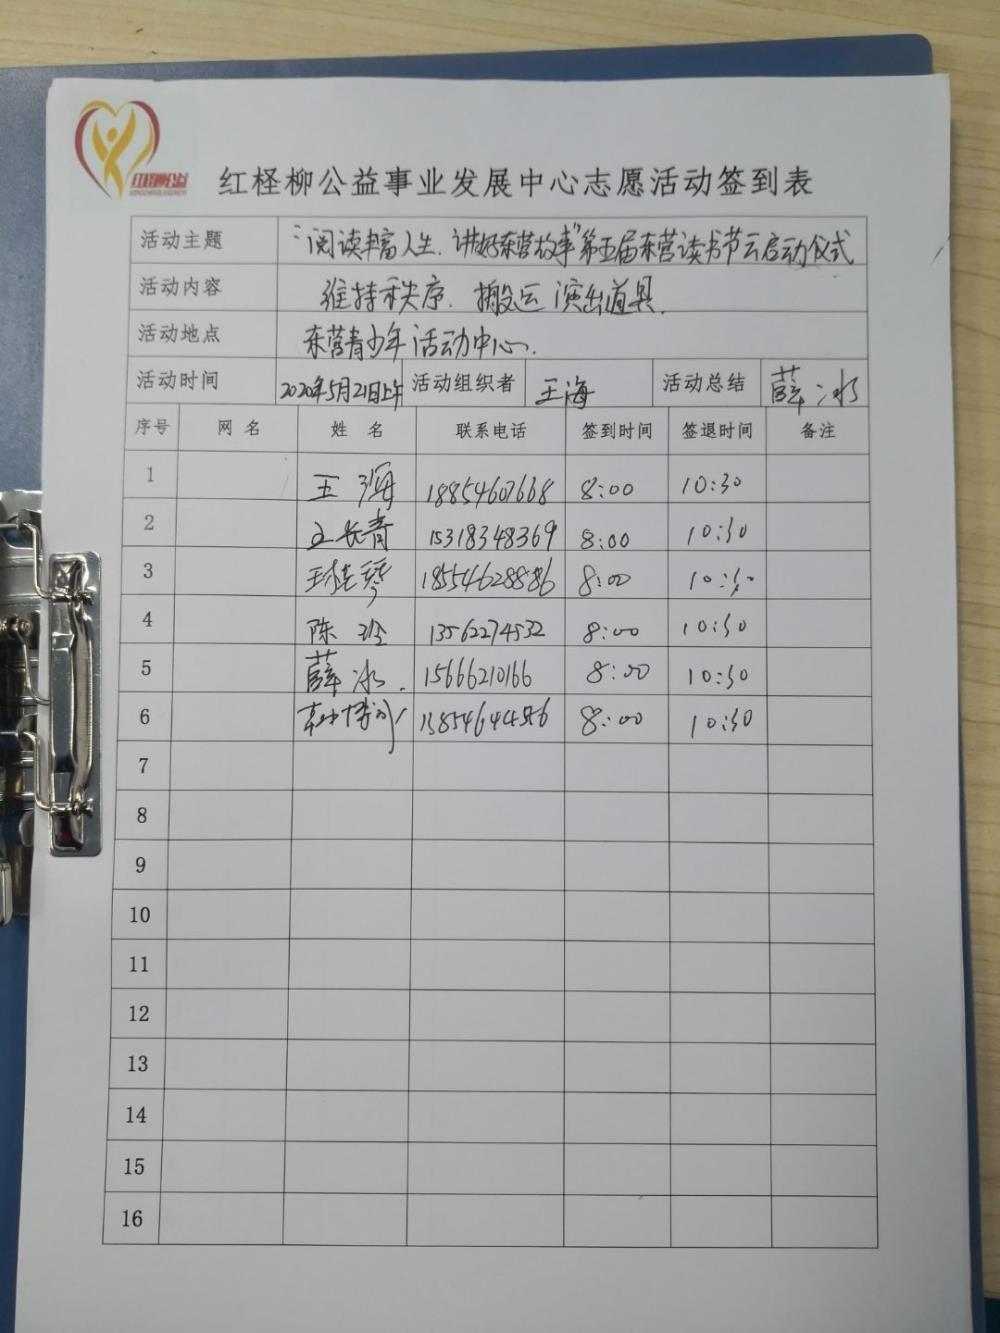 红柽柳公益
红柽柳公益事业发展中心志愿活动签到表
活动主题 "阅读丰富人生.讲好东营故事"第五届东营读书节云启动仪式
活动内容 维持秩序.搬运演出道具.
活动地点 东营青少年活动中心.
活动时间 2020年5月21日上午 活动组织者 王海 活动总结 薛冰
序号 网名 姓名 联系电话 签到时间 签退时间 备注
1 王海 18854607668 8:00 10:30
2 王长青 15318348369 8:00 10:30
3 18554628886 8:00 10:30
4 陈玲 13562274532 8:00 10:30
5 薛冰. 15666210166 8:00 10:30
6 8:00 10:30
7
8
9
10
11
12
13
14
15
16